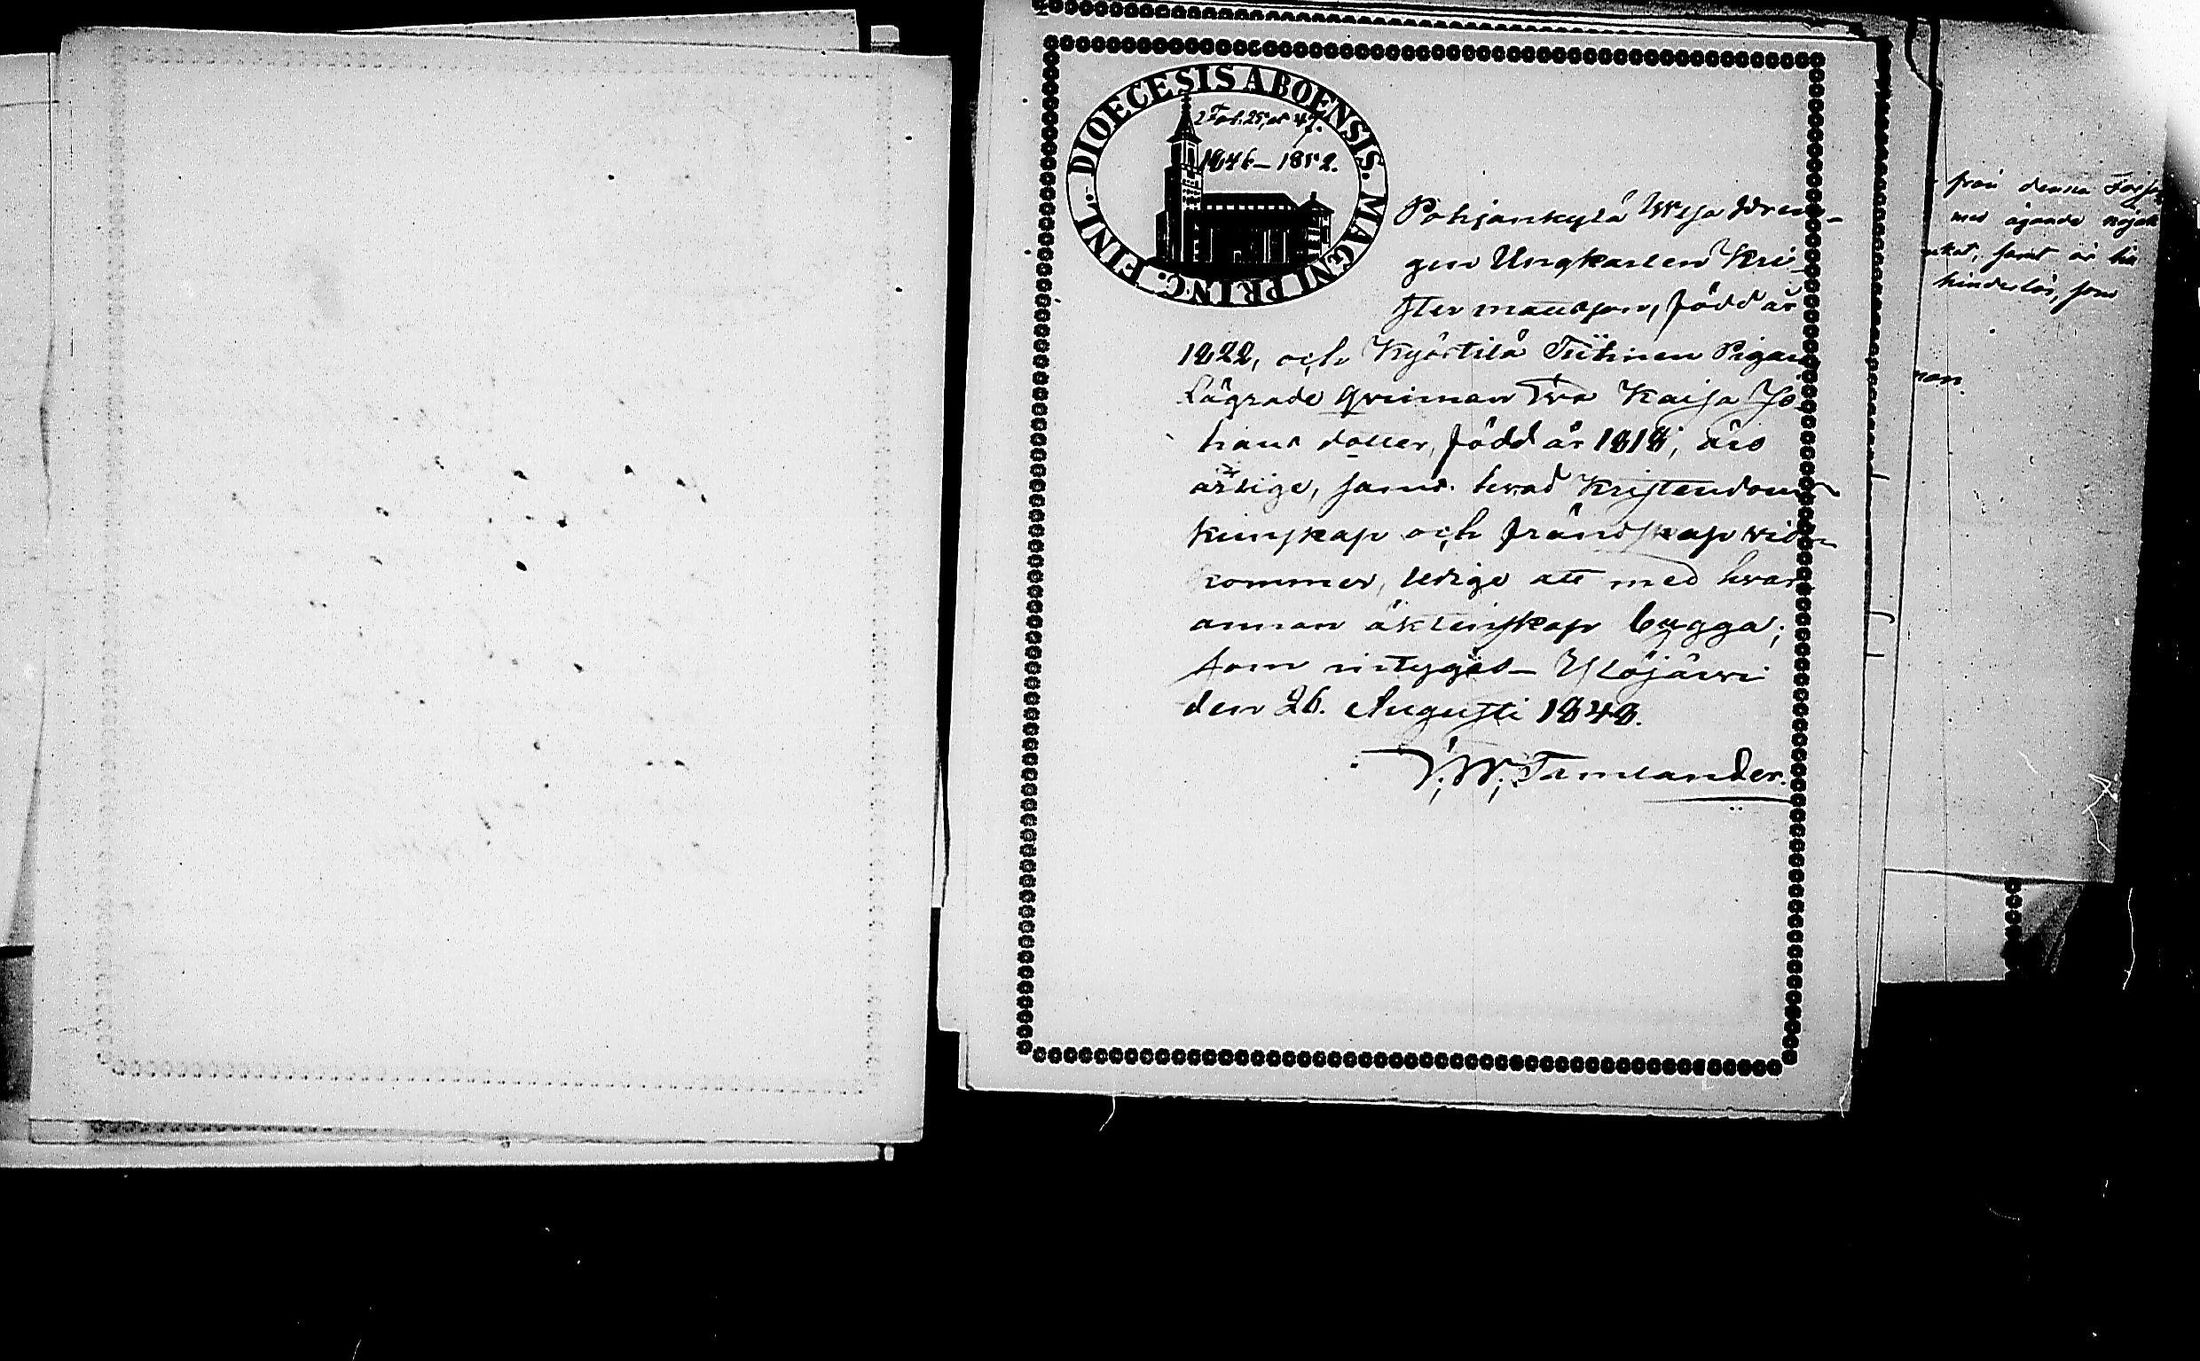 DIOECESIS ABOENSIS. MAGNI PRINC. FINL.
2 Fol. 25, et 47.
1846–1852.
Pohjankylä Uusja Dren-
gen Ungkarlen Kri-
ster mansson, född år
1822, och Kyöstilä Pigan
Lägrade qvinnan Kaisa Jo-
hans dotter, född år 1818, äro
ärlige, samt hvad Kristendoms
kunskap och frändskap wid-
kommer, ledige att med hvar
annan äktenskap bygga;
som intygas Ylöjärvi
den 26. Augusti 1848.
Tamlander.
från denna Förs
med ägande nöjak
hinderlös, som